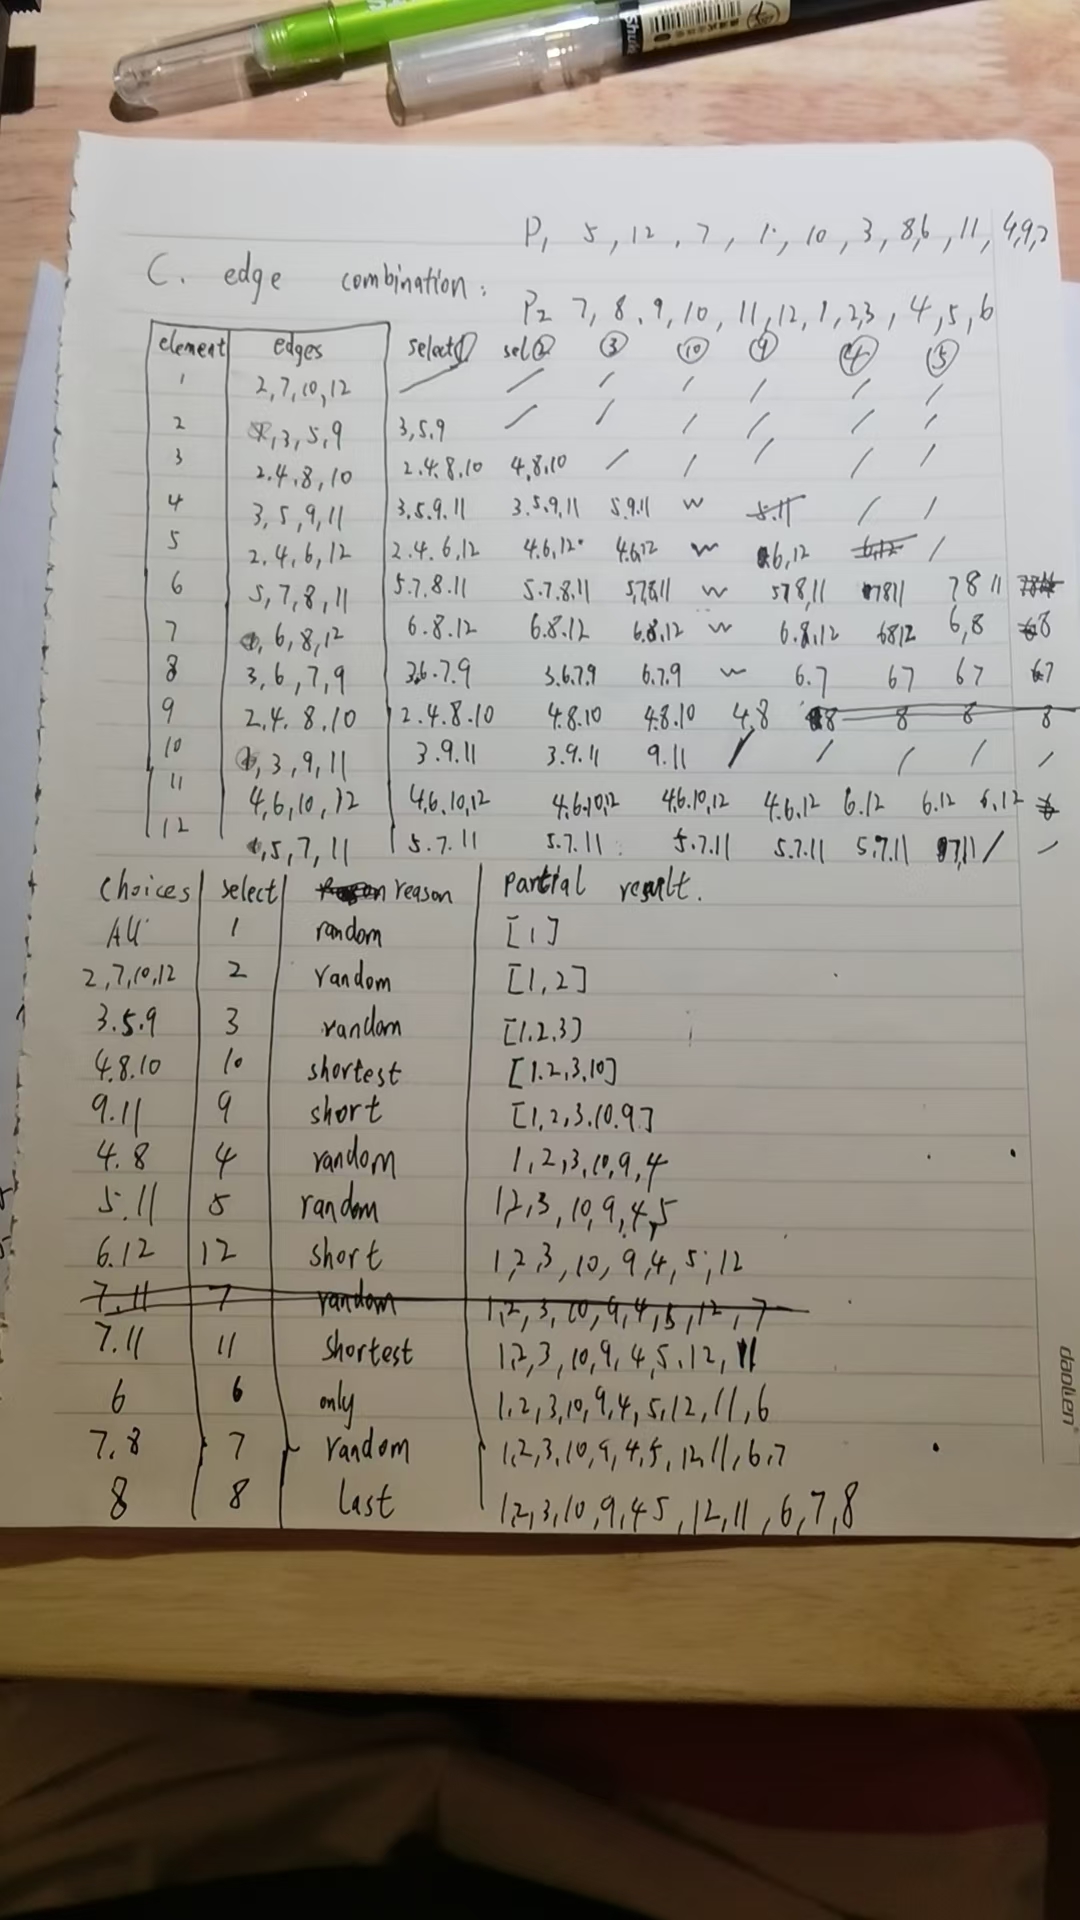 P1 5, 12, 7, 1, 10, 3, 8,6, 11, 4,9,2
C. edge combination:
P2 7, 8, 9, 10, 11, 12, 1, 2,3, 4, 5, 6
element edges select① sel② ③ ⑩ ⑨ ④ ⑤
1 2,7,10,12 / / / / / / /
2 1,3,5,9 3,5.9 / / / / / /
3 2.4.8,10 2.4.8,10 4,8,10 / / / / /
4 3,5,9,11 3,5.9.11 3.5.9,11 5.9.11 ~ 5.11 / /
5 2.4,6,12 2.4.6,12 4.6,12 4.6,12 ~ 6,12 6,12 /
6 5,7,8,11 5.7.8.11 5.7.8.11 5,7,8,11 ~ 578,11 7811 78 11
7 1, 6,8,12 6.8.12 6.8.12 6.8.12 ~ 6.8,12 6812 6,8 68
8 3,6,7,9 3.6.7.9 3.6.7.9 6.7.9 ~ 6.7 67 67 67
9 2.4.8,10 2.4.8.10 4.8.10 4.8.10 4,8 8 8 8 8
10 1, 3,9,11 3.9.11 3.9.11 9.11 / / / / /
11 4,6,10,12 4,6.10,12 4.6.10,12 4.6.10,12 4.6.12 6.12 6.12 6.12 6
12 1,5,7,11 5.7.11 5.7.11 5.7.11 5.7.11 5.7.11 7,11 / /
Choices select reason Partial result.
All 1 random [1]
2,7,10,12 2 random [1,2]
3.5.9 3 random [1.2.3]
4.8.10 10 shortest [1.2,3,10]
9.11 9 short [1,2,3.10.9]
4.8 4 random 1,2,3,10,9,4
5.11 5 random 1,2,3,10,9,4,5
6.12 12 short 1,2,3,10,9,4,5,12
7.11 7 random 1,2,3,10,9,4,5,12,7
7.11 11 shortest 1,2,3,10,9,4,5.12,11
6 6 only 1,2,3,10,9,4,5,12,11,6
7,8 7 random 1,2,3,10,9,4,5,12,11,6,7
8 8 last 1,2,3,10,9,4 5,12,11,6,7,8
daolien